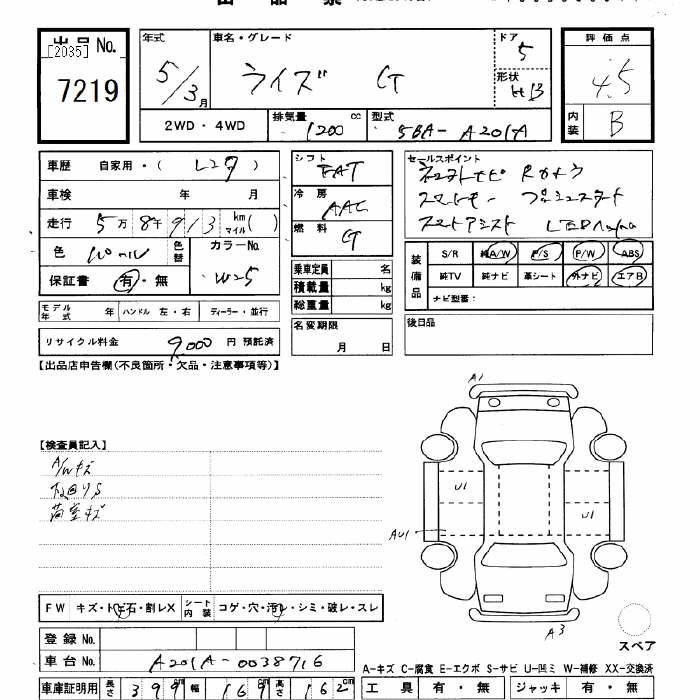 出品票
出品 No.
[2035]
7219
年式 5/3月
車名・グレード
ライズ G
ドア 5
形状 HB
2WD・4WD
排気量 1200 cc
型式 5BA-A201A
評価点
4.5
内装 B
車歴 自家用・( レンタ )
車検 年 月
走行 5万8千913 km マイル( )
色
色替
カラーNo. W25
保証書 有・無
モデル年式 年 ハンドル 左・右 ディーラー・並行
リサイクル料金 9,000 円 預託済
シフト FAT
冷房 AAC
燃料 G
乗車定員 名
積載量 kg
総重量 kg
名変期限
月 日
セールスポイント
スマートキー プッシュスタート
スマートアシスト
装備品
S/R 純A/W P/S P/W ABS
純TV 純ナビ 革シート 外ナビ エアB
ナビ型番:
後日品
【出品店申告欄(不良箇所・欠品・注意事項等)】
【検査員記入】
A/Wキズ
下回りS
荷室キズ
A1
U1
U1
AU1
A3
FW キズ・トビ石・割レX
シート内装 コゲ・穴・汚レ・シミ・破レ・スレ
登録 No.
車台 No. A201A-0038716
車庫証明用 長さ 399 cm 幅 169 cm 高さ 162 cm
スペア
A-キズ C-腐食 E-エクボ S-サビ U-凹ミ W-補修 XX-交換済
工具 有・無 ジャッキ 有・無